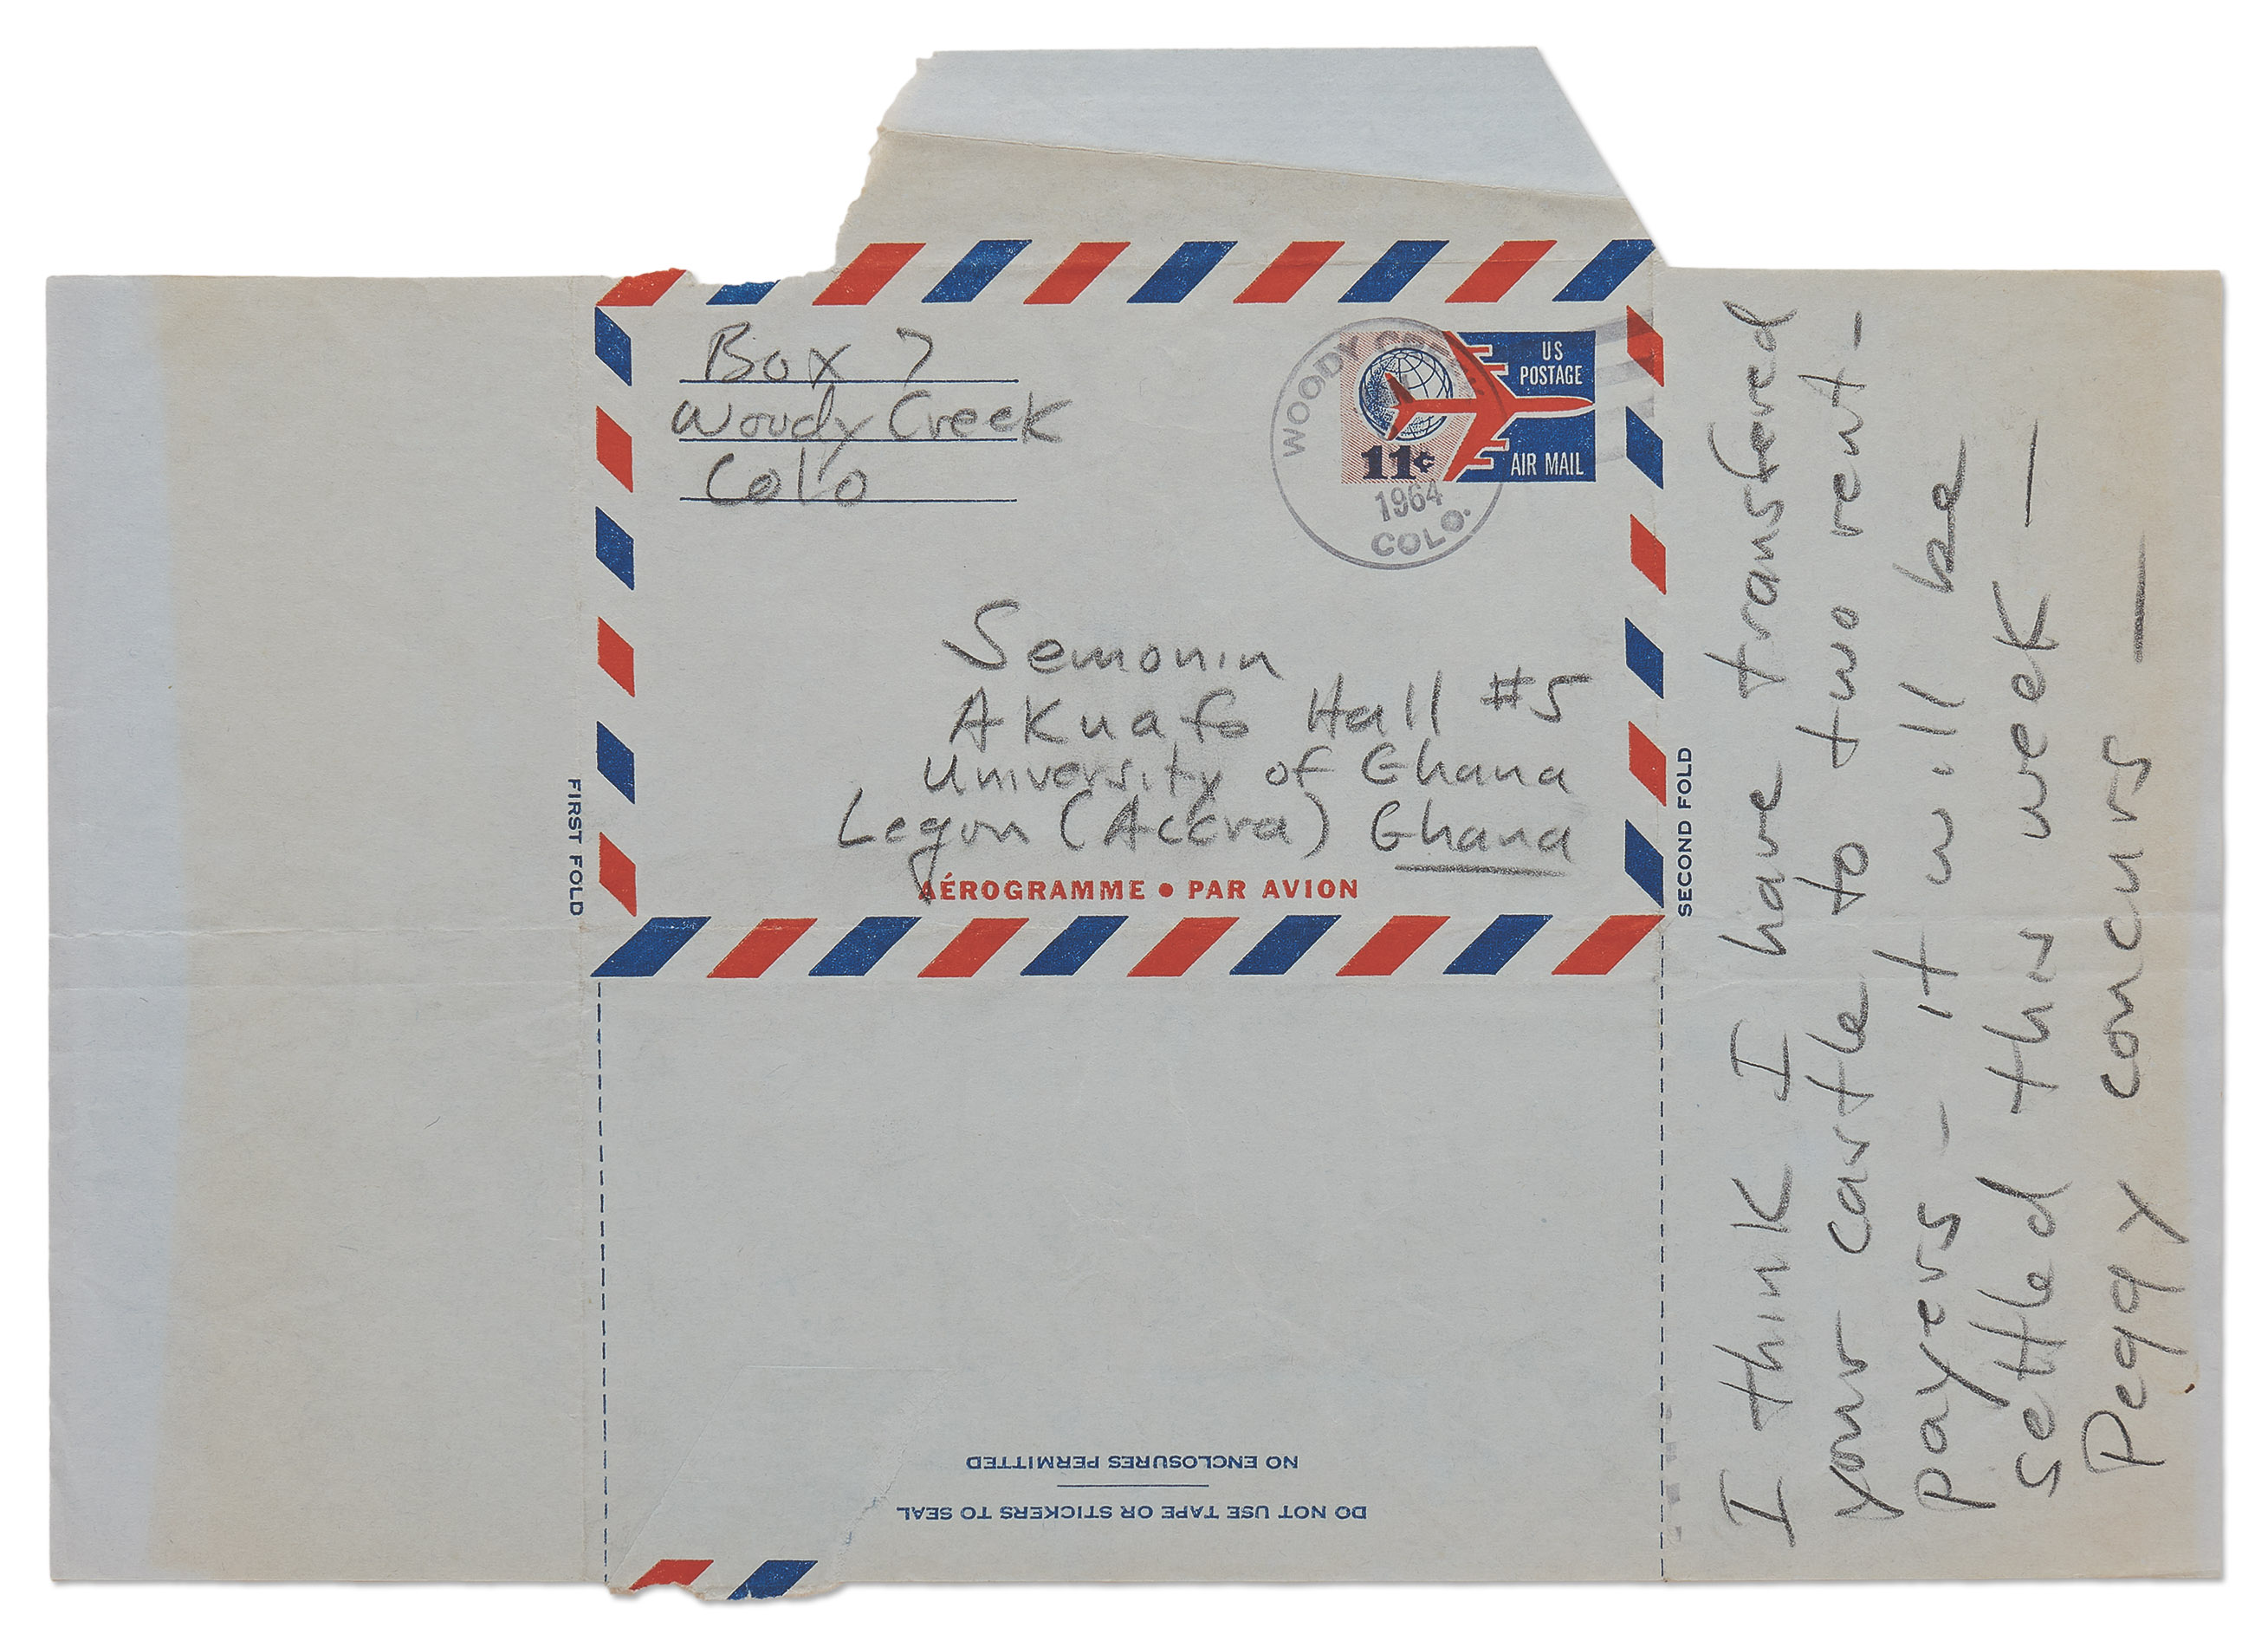 Box 7
Woody Creek
Colo
WOODY CREEK
1964
COLO.
US
POSTAGE
11¢
AIR MAIL
Semonin
Akuafo Hall #5
University of Ghana
Legon (Accra) Ghana
AÉROGRAMME • PAR AVION
FIRST FOLD
SECOND FOLD
I think I have transfered
your castle to two rent-
payers - it will be
settled this week —
Peggy concurs —
NO ENCLOSURES PERMITTED
DO NOT USE TAPE OR STICKERS TO SEAL